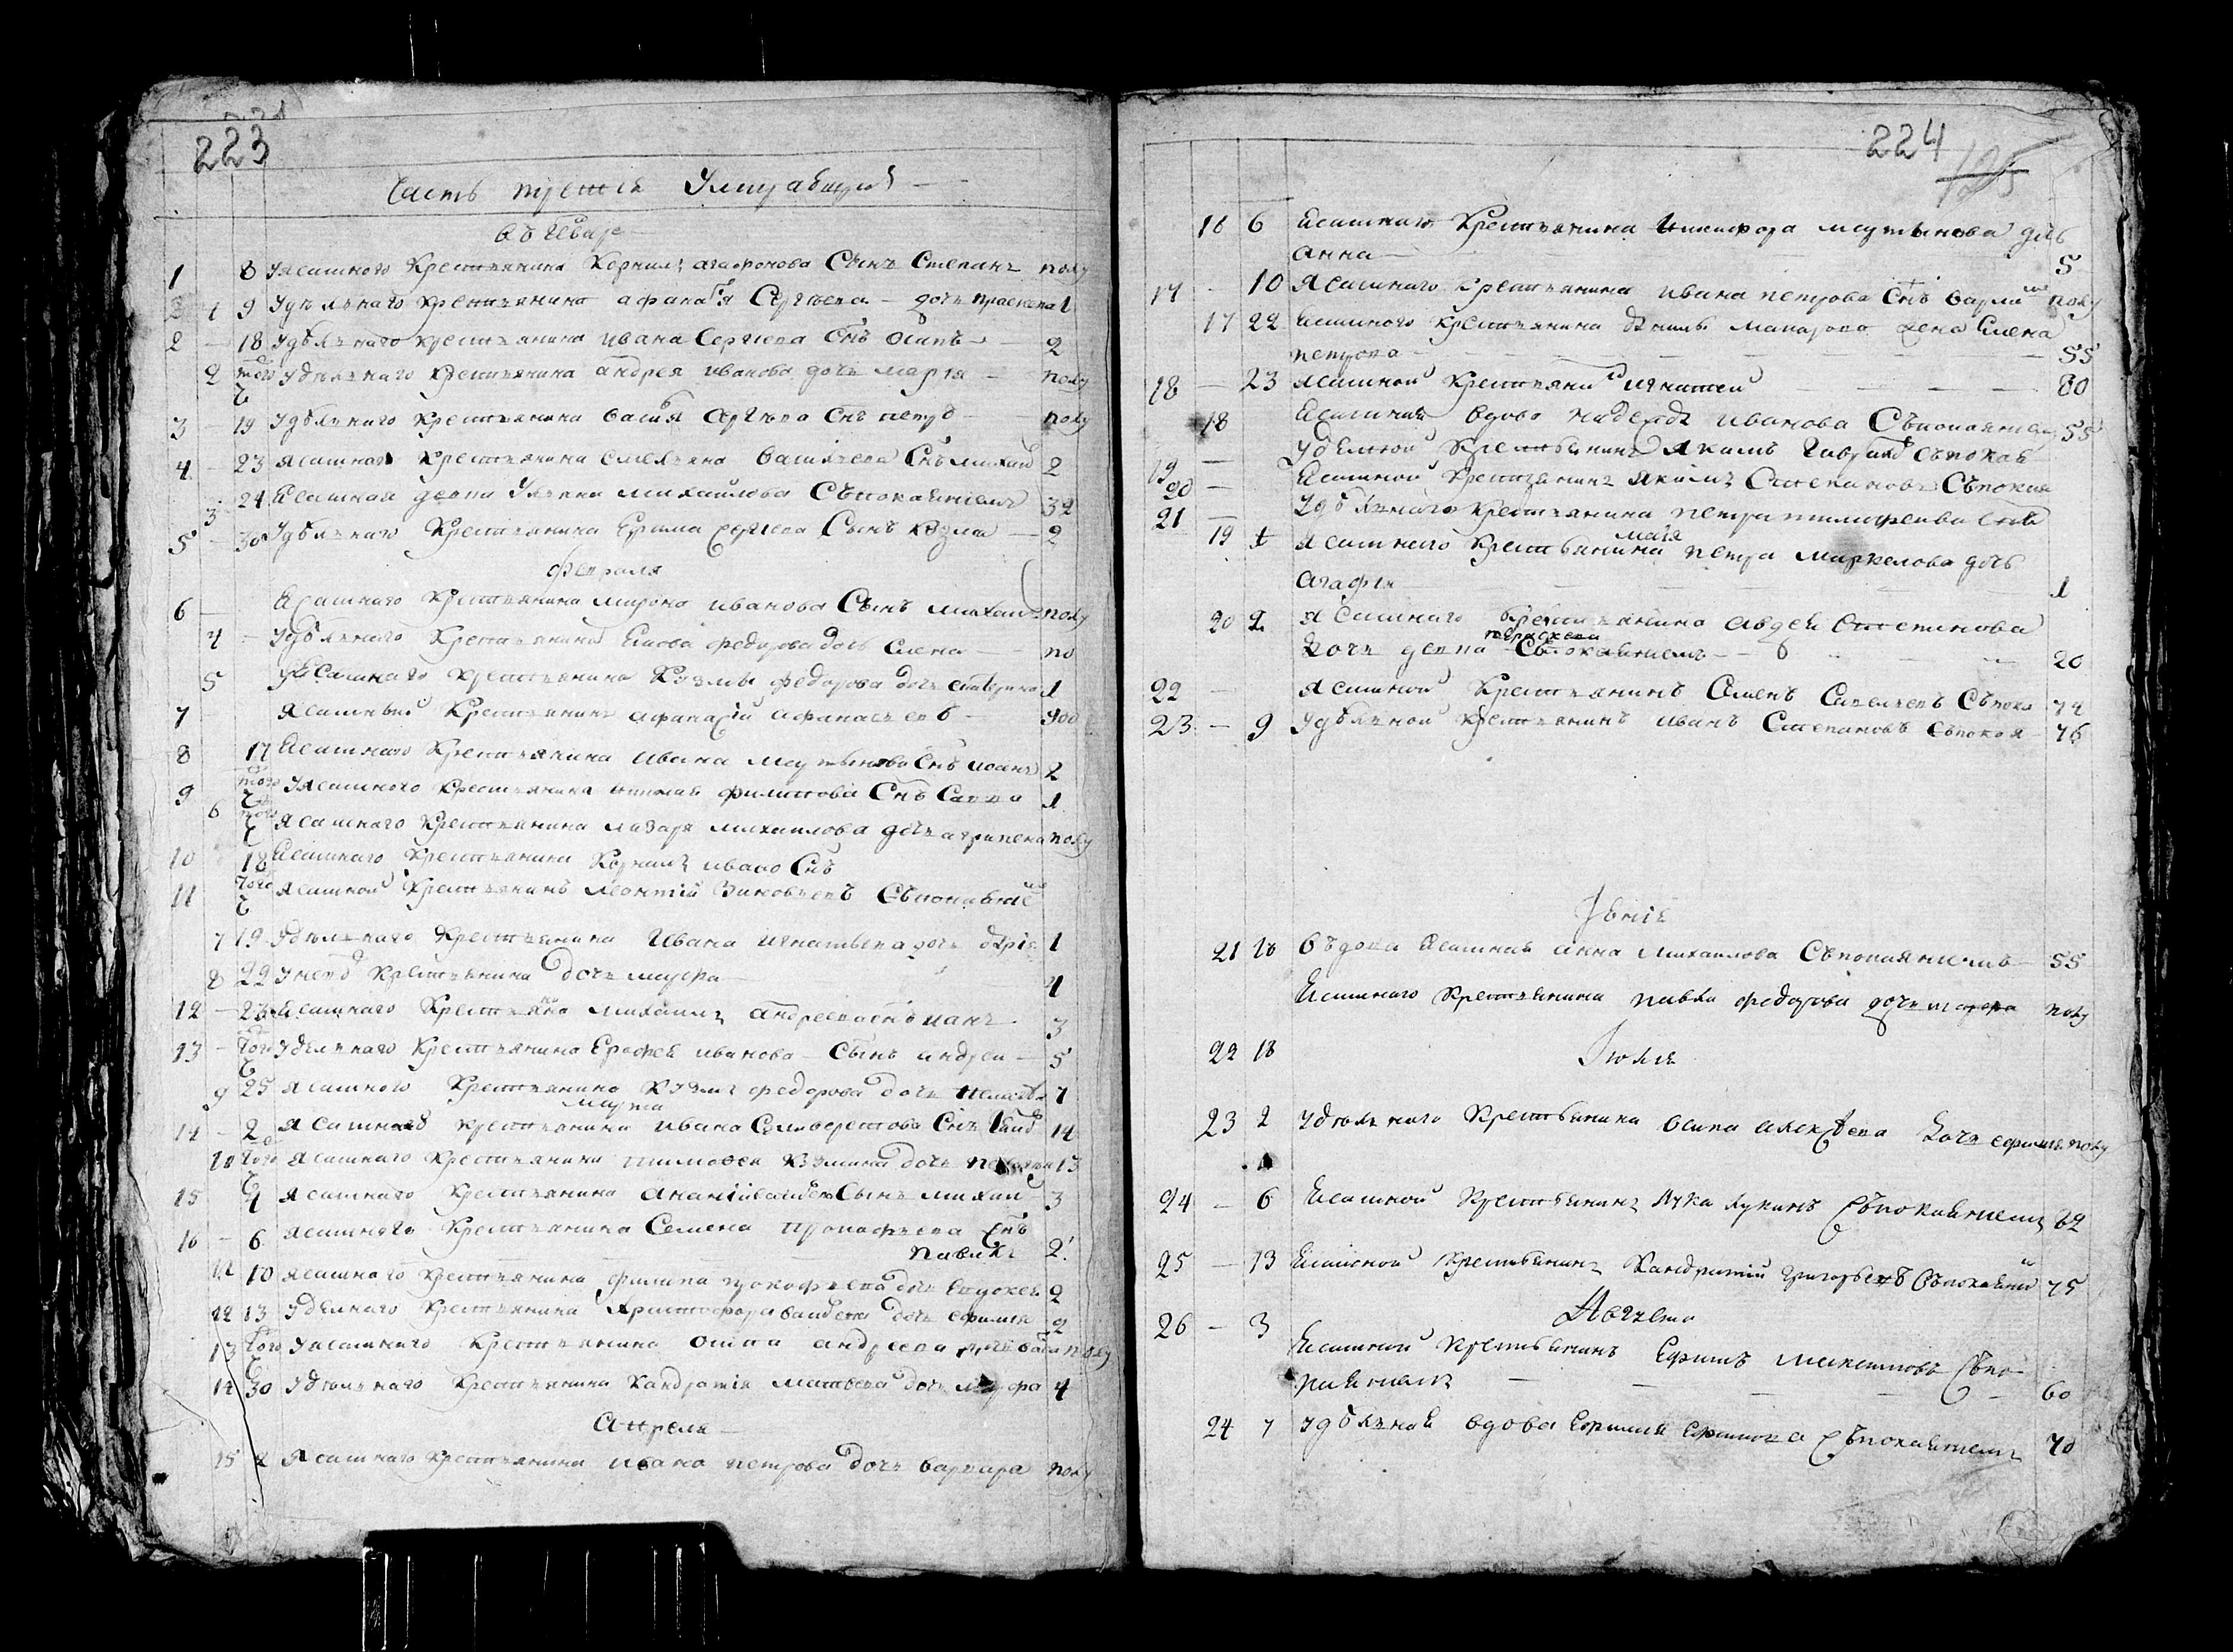 223
Часть третїя Умиравщихъ
въ Генваре
1 8 У ясашного Крестьянина Корнилъ агафонова Сынъ Степанъ полу
1 9 Удѣльнаго крестьянина афанасїя Сергѣева дочь праскева 1
2 18 Удѣльнаго крестьянина ивана Сергеева Снъ Осипъ 2
2 того Удѣльнаго крестьянина андрея иванова дочь марїя полу
3 19 Удѣльнаго крестьянина василья Сергѣева Снъ петръ полу
4 23 ясашнаго крестьянина Снъ михаи 2
3 24 ясашная девка Ульяна михайлова Съпокаянїемъ 32
5 30 Удѣльнаго Крестьянина Ефима Сергеева Сынъ козма 2
Февраля
6 ясашнаго Крестьянина мирона иванова Сынъ михаи полу
4 Удѣльнаго Крестьянина федорова дочь Елена по
5 ясашнаго крестьянина Кузмы федорова дочь 1
7 ясашный Крестьянинъ афанасїй афанасьевъ
8 17 ясашнаго Крестьянина ивана мартынова Снъ 2
9 того У ясашного Крестьянина филипова Снъ Савва 1
6 того ясашнаго Крестьянина лазаря михаилова дочь агрипена полу
10 18 ясашнаго Крестьянина Корнилъ ивано Снъ
11 того ясашной Крестьянинъ Леонтїй Зиновьевъ Съпокаянїе
7 19 Удѣльнаго Крестьянина Ивана игнатьева дочь 1
8 22 Крестьянина дочь марфа 4
12 23 ясашнаго Крестьянина михаилъ андреева снъ иванъ 3
13 того Удѣльнаго Крестьянина Ерофея иванова Сынъ андреи 5
9 25 ясашного Крестьянина Кузмы федорова дочь 7
марта
14 2 ясашнаго крестьянина ивана Селиверстова Снъ 14
10 того ясашнаго Крестьянина тимофея Кузмина дочь 13
15 4 ясашнаго Крестьянина Сынъ михаи 3
16 6 ясашняго Крестьянина Семена Снъ
павелъ 2
11 10 ясашнаго крестьянина филипа прокофьева дочь Евдокея 2
12 13 Удѣлнаго Крестьянина Христофора дочь ефимья 2
13 того У ясашнаго Крестьянина андреева полу
14 30 Удѣльнаго Крестьянина Кандратїя матвеева дочь марфа 4
Апреля
15 ясашнаго крестьянина ивана петрова дочь варвара полу
224
125
16 6 ясашнаго Крестьянина никифора мартынова дчь
анна 5
17 10 ясашнаго Крестьянина ивана петрова Снъ полу
17 22 ясашного крестьянина макарова жена Елена
петрова 55
18 23 ясашной Крестьянинъ игнатей 80
18 ясашная вдова надежда иванова Съпокаянїемъ 55
19 Удѣлной Крестьянинъ якимъ съпокая
20 ясашной Крестьянинъ якимъ Степановъ Съпокая
21 Удѣльнаго Крестьянина петра тимофеева снъ
мая
19 1 ясашнаго Крестьянина петра маркелова дочь
агафїя 1
20 2 ясашнаго Крестьянина авдея Степанова
дочь девка праскева Съпокаянїемъ 20
22 ясашной Крестьянинъ Семенъ Савельевъ Съпока 74
23 9 Удѣльной крестьянинъ иванъ Степановъ Съпокоя 76
Iюнїя
21 10 въдова ясашная анна михаилова Съпокаянїемъ 55
ясашнаго Крестьянина павла федорова дочь полу
22 18 Iюля
23 2 Удѣльнаго Крестьянина осипа алексѣева дочь ефимья полу
24 6 ясашной Крестьянинъ Лука лукинъ Съпокаянїемъ 62
25 13 ясашной Крестьянинъ Кандратїй григорьевъ Съпокаянїй 75
Августа
26 3 ясашной Крестьянинъ Ефимъ максимовъ Съпо-
каянїемъ 60
24 7 Удѣльная вдова ефимова Съпокаянїемъ 70